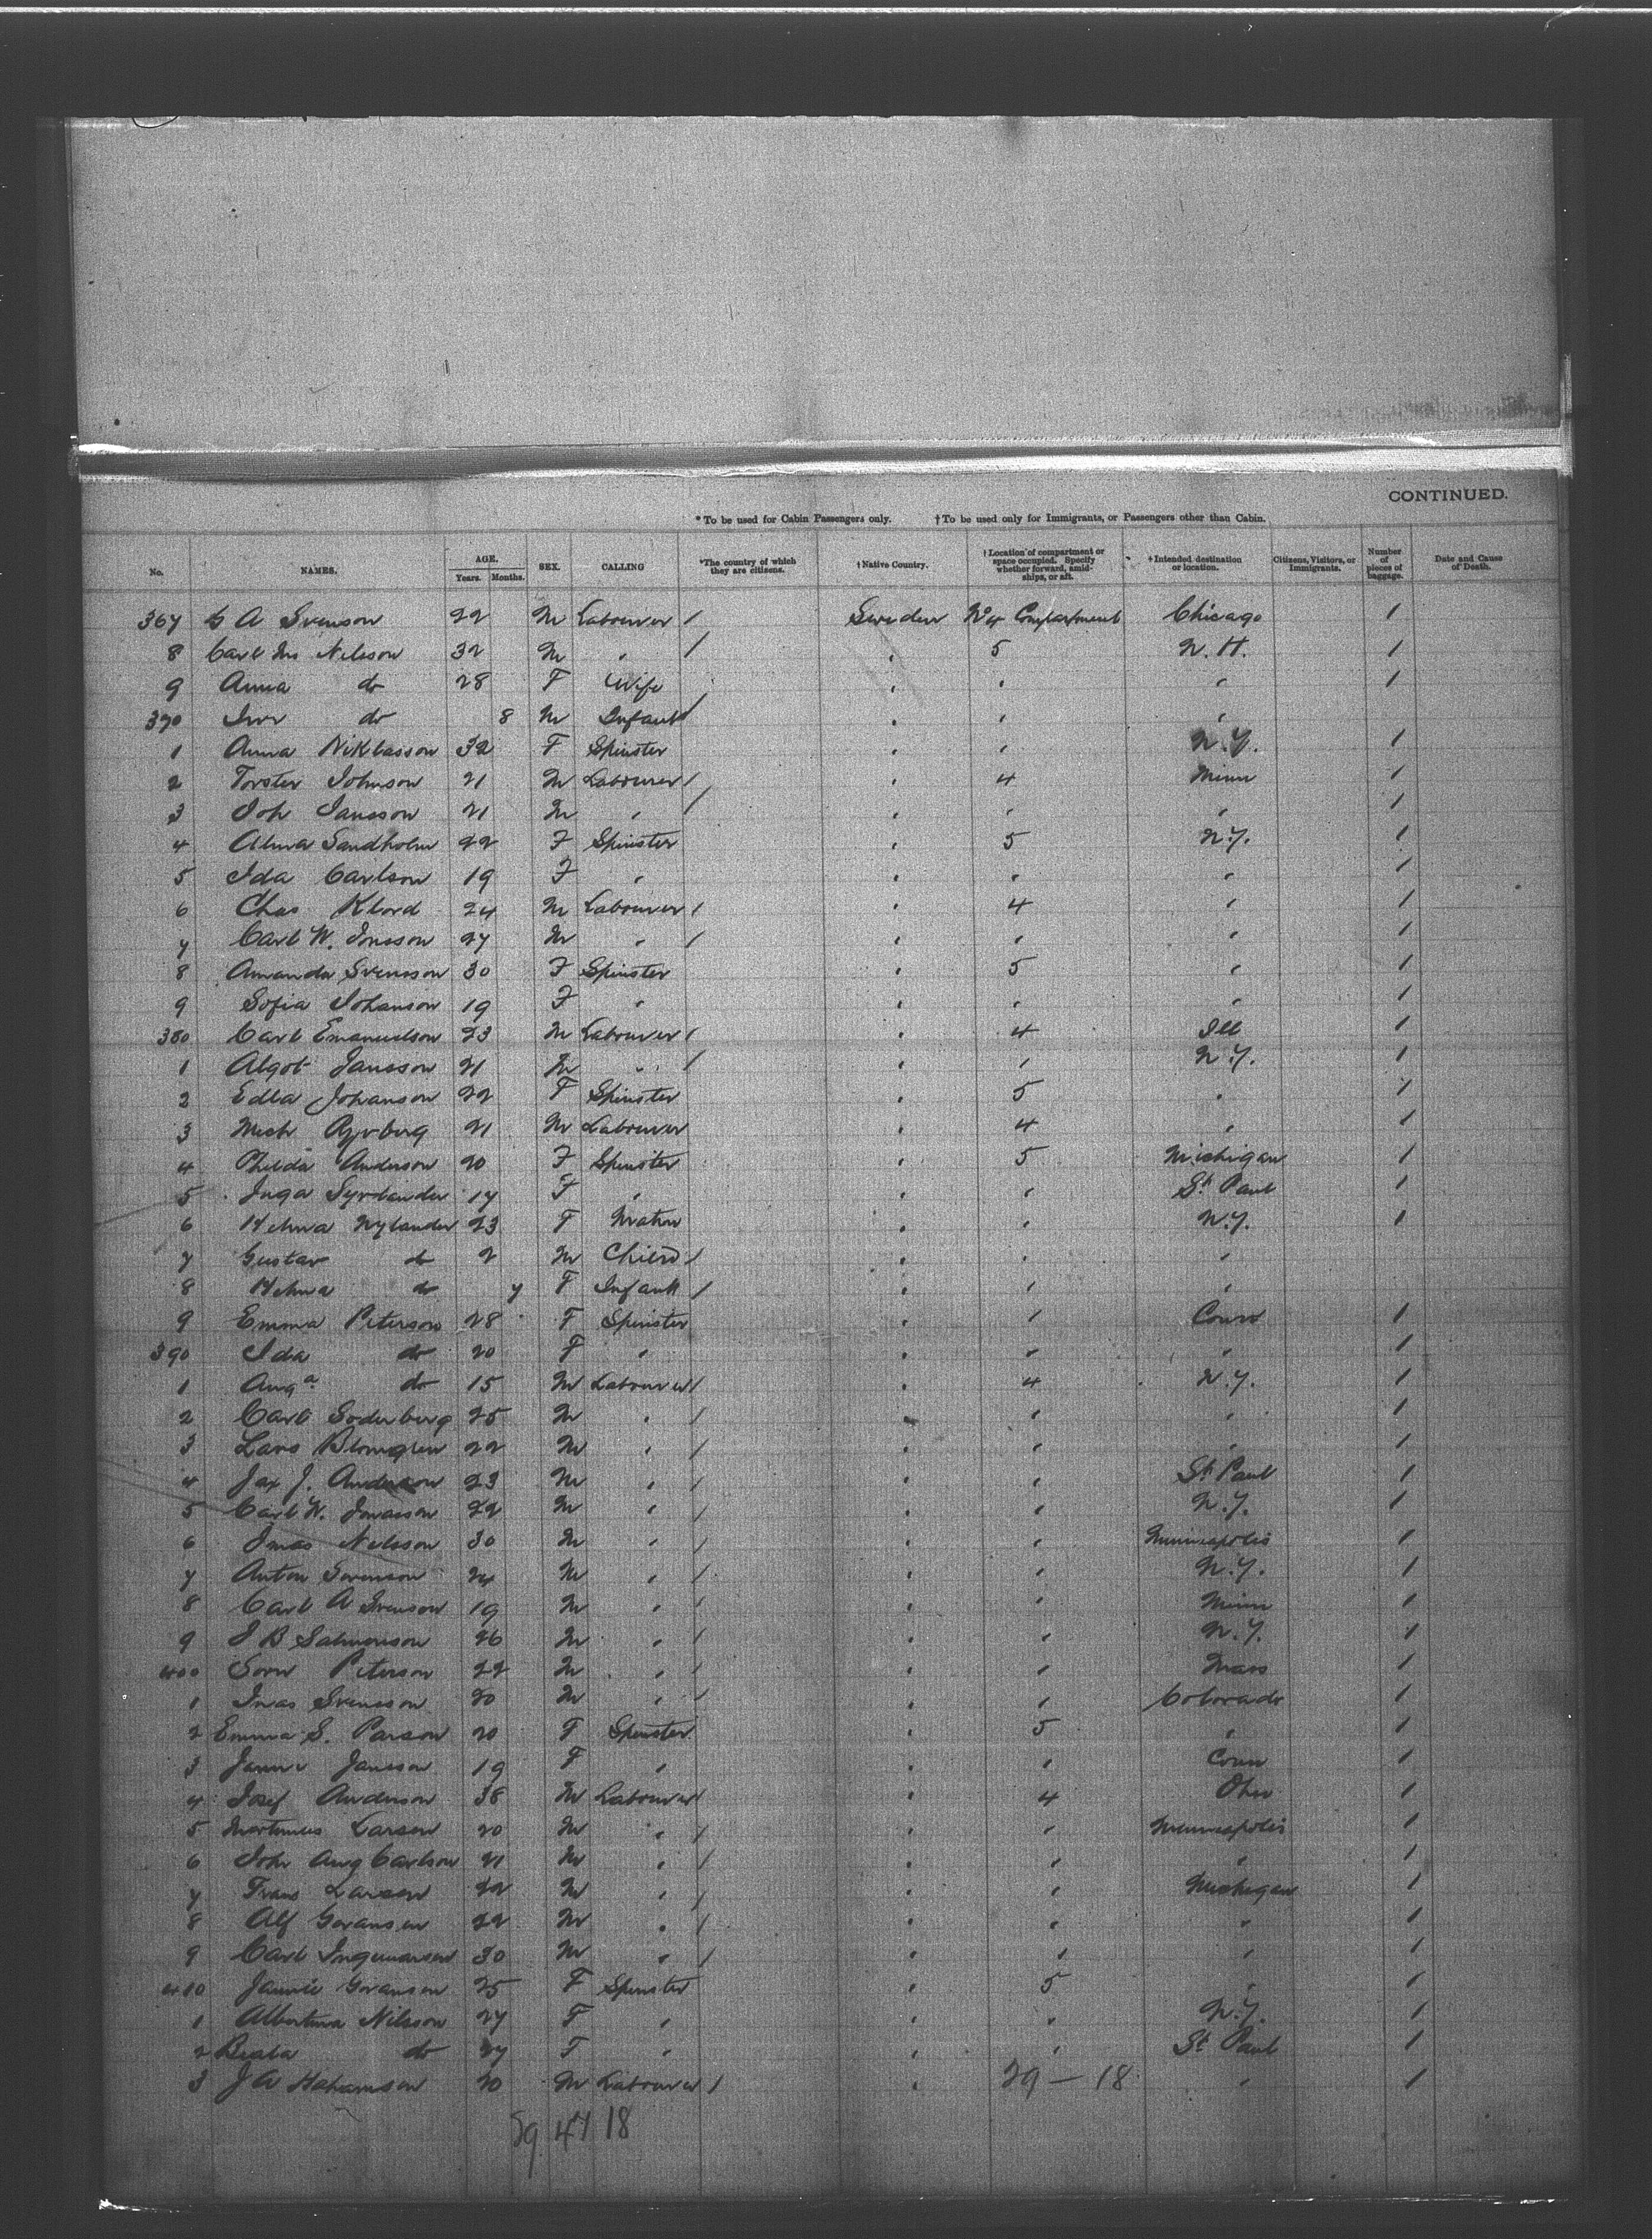 CONTINUED.
*To be used for Cabin Passengers only. †To be used only for Immigrants, or Passengers other than Cabin.
No. NAMES. AGE. Years. Months. SEX. CALLING *The country of which they are citizens. †Native Country. †Location of compartment or space occupied. Specify whether forward, amidships, or aft. †Intended destination or location. Citizens, Visitors, or Immigrants. Number of pieces of baggage. Date and Cause of Death.
367 G A Svenson 22 M Labourer / Sweden No 4 Compartment Chicago 1
8 Carl Ms Nilsson 32 M " / " 5 N.H. 1
9 Anna do 28 F Wife " " " 1
370 Ivor do 8 M Infant / " " "
1 Anna Niklasson 32 F Spinster " " N.Y. 1
2 Torster Johnson 21 M Labourer / " 4 Minn 1
3 Joh Jansson 21 M " / " " " 1
4 Alma Sandholm 22 F Spinster " 5 N.Y. 1
5 Ida Carlson 19 F " " " " 1
6 Chas Klord 24 M Labourer / " 4 " 1
7 Carl W. Jonsson 27 M " / " " " 1
8 Amanda Svensson 30 F Spinster " 5 " 1
9 Sofia Johanson 19 F " " " " 1
380 Carl Emanuelson 23 M Labourer / " 4 Ill 1
1 Algot Jansson 21 M " / " " N.Y. 1
2 Edla Johanson 22 F Spinster " 5 " 1
3 Mich 21 M Labourer " 4 " 1
4 Anderson 20 F Spinster " 5 Michigan 1
5 Inga 17 F " " " St. Paul 1
6 Helma Nylander 23 F Matron " " N.Y. 1
7 Gustav do 2 M Child / " " "
8 Helma do 7 F Infant / " " "
9 Emma Peterson 28 F Spinster " " Conn 1
390 Ida do 20 F " " " " 1
1 Aug a do 15 M Labourer / " 4 N.Y. 1
2 Carl Soderberg 25 M " / " " " 1
3 Lars Blomgren 22 M " / " " " 1
4 Jax J. Anderson 23 M " / " " St. Paul 1
5 Carl W. Jonasson 22 M " / " " N.Y. 1
6 Jonas Nilsson 30 M " / " " Minneapolis 1
7 Anton Sorenson 24 M " / " " N.Y. 1
8 Carl A Svenson 19 M " / " " Minn 1
9 J B Salmonson 26 M " / " " N.Y. 1
400 Sorn Peterson 22 M " / " " Mass 1
1 Jonas Svensson 20 M " / " " Colorado 1
2 Emma S. Parson 20 F Spinster " 5 " 1
3 Jansson 19 F " " " Conn 1
4 Josef Anderson 38 M Labourer / " 4 Ohio 1
5 Martinus Larsen 20 M " / " " Minneapolis 1
6 John Aug Carlson 21 M " / " " " 1
7 Frans Larsen 22 M " / " " Michigan 1
8 Alf Goransen 22 M " / " " " 1
9 Carl Ingemarsen 30 M " / " " " 1
410 Jannie Goransen 25 F Spinster " 5 " 1
1 Albertina Nilsson 27 F " " " N.Y. 1
2 Beata do 27 F " " " St. Paul 1
3 J A 20 M Labourer / " 29 – 18 " 1
29 47 18